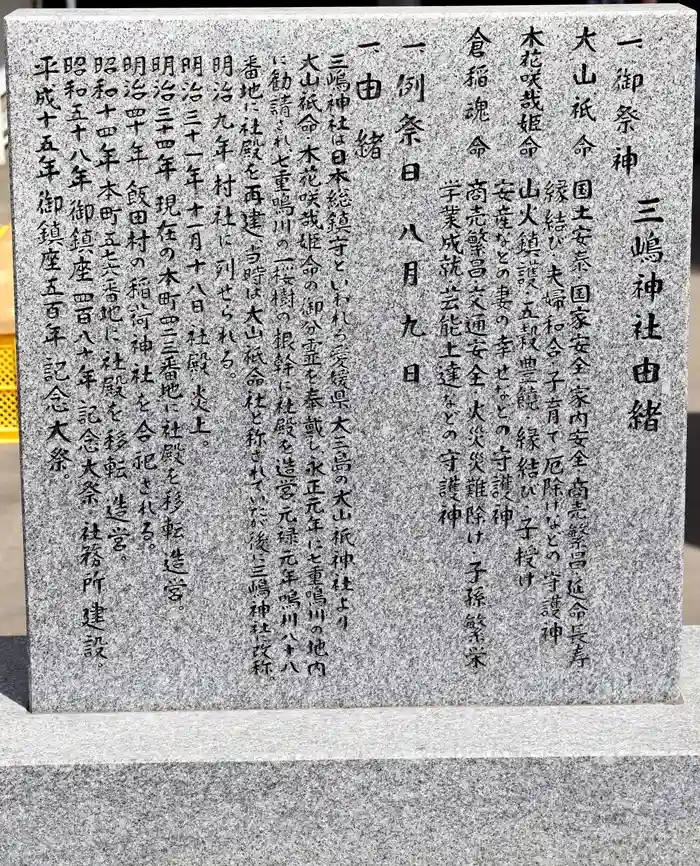 三嶋神社由緒
一 御祭神
大山祇命 国土安泰・国家安全・家内安全・商売繁昌・延命長寿
縁結び・夫婦和合・子育て・厄除けなどの守護神
木花咲哉姫命 山火鎮護・五穀豊饒・縁結び・子授け
安産などの妻の幸せなどの守護神
倉稲魂命 商売繁昌・交通安全・火災災難除け・子孫繁栄
学業成就・芸能上達などの守護神
一 例祭日 八月九日
一 由緒
三嶋神社は日本総鎮守といわれる愛媛県大三島の大山祇神社より
大山祇命 木花咲哉姫命の御分霊を奉戴し永正元年に七重鳴川の地内
に勧請され七重鳴川の一桜樹の根幹に社殿を造営 元禄元年鳴川八十八
番地に社殿を再建 当時は大山祇命社と称されていたが後に三嶋神社に改称
明治九年村社に列せられる。
明治三十一年十一月十八日 社殿 炎上
明治三十四年 現在の本町四二三番地に社殿を移転 造営。
明治四十年 飯田村の稲荷神社を合祀される。
昭和十四年本町五七六番地に社殿を移転 造営。
昭和五十八年 御鎮座四百八十年 記念大祭 社務所建設。
平成十五年 御鎮座五百年 記念大祭。